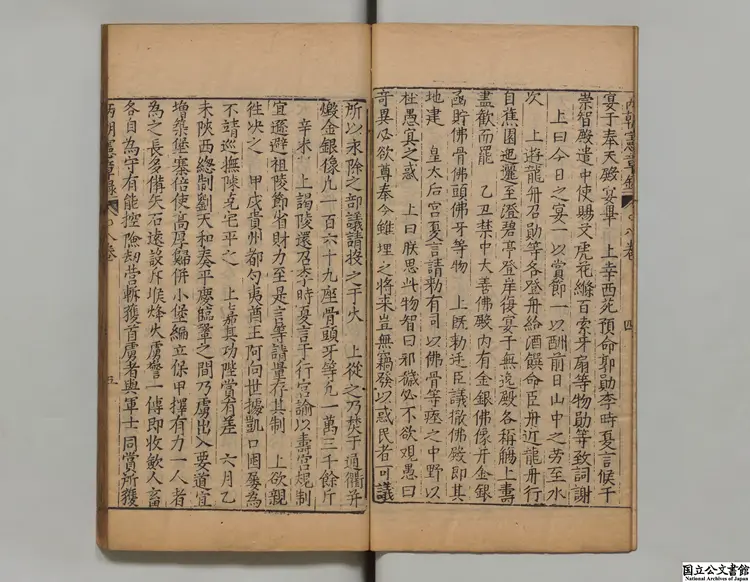 宴子奉天殿宴畢　上幸西苑預命郭勛李時夏言候于
崇智殿遣中使賜艾虎花縧百索牙扇等物勛等致詞謝
上曰今日之宴一以賞節一以酬前日山中之勞至水
次　上遊龍舟召勛等各登舟給酒饌命臣舟近龍舟行
自蕉園迤邐至澄碧亭登岸復宴于無逸殿各稱觴上壽
盡歡而罷　乙丑禁中大善佛殿內有金銀佛像并金銀
函貯佛骨佛頭佛牙等物　上既勅廷臣議撤佛殿即其
地建　皇太后宫夏言請勅有司以佛骨等瘞之中野以
杜愚冥之惑　上曰朕思此物智曰邪穢必不欲觀愚曰
奇異必欲尊奉今雖埋之將來豈無竊發以惑民者可議
所以永除之部議請投之于火　上從之乃焚于通衢并
燬金銀像凡一百六十九座骨頭牙等凡一萬三千餘斤
辛未　上謁陵還召李時夏言于行宫諭以壽宫規制
宜遜避祖陵節省財力至是言等請量存其制　上欲親
徃决之　甲戌貴州都勻夷酋王阿向世據凱口囤屢為
不靖巡撫陳克宅平之　上嘉其功陞賞有差　六月乙
未陝西總制劉天和奏平慶臨鞏之間乃虜出入要道宜
增築堡塞倍使高厚歸併小堡編立保甲擇有力一人者
為之長多備矢石遠設斥堠烽火虜警一傳即收歛人畜
各自為守有能控險刼營斬獲首虜者與軍士同賞所獲
兩朝憲章錄
卷
四
兩朝憲章錄
卷
五
国立公文書館
National Archives of Japan